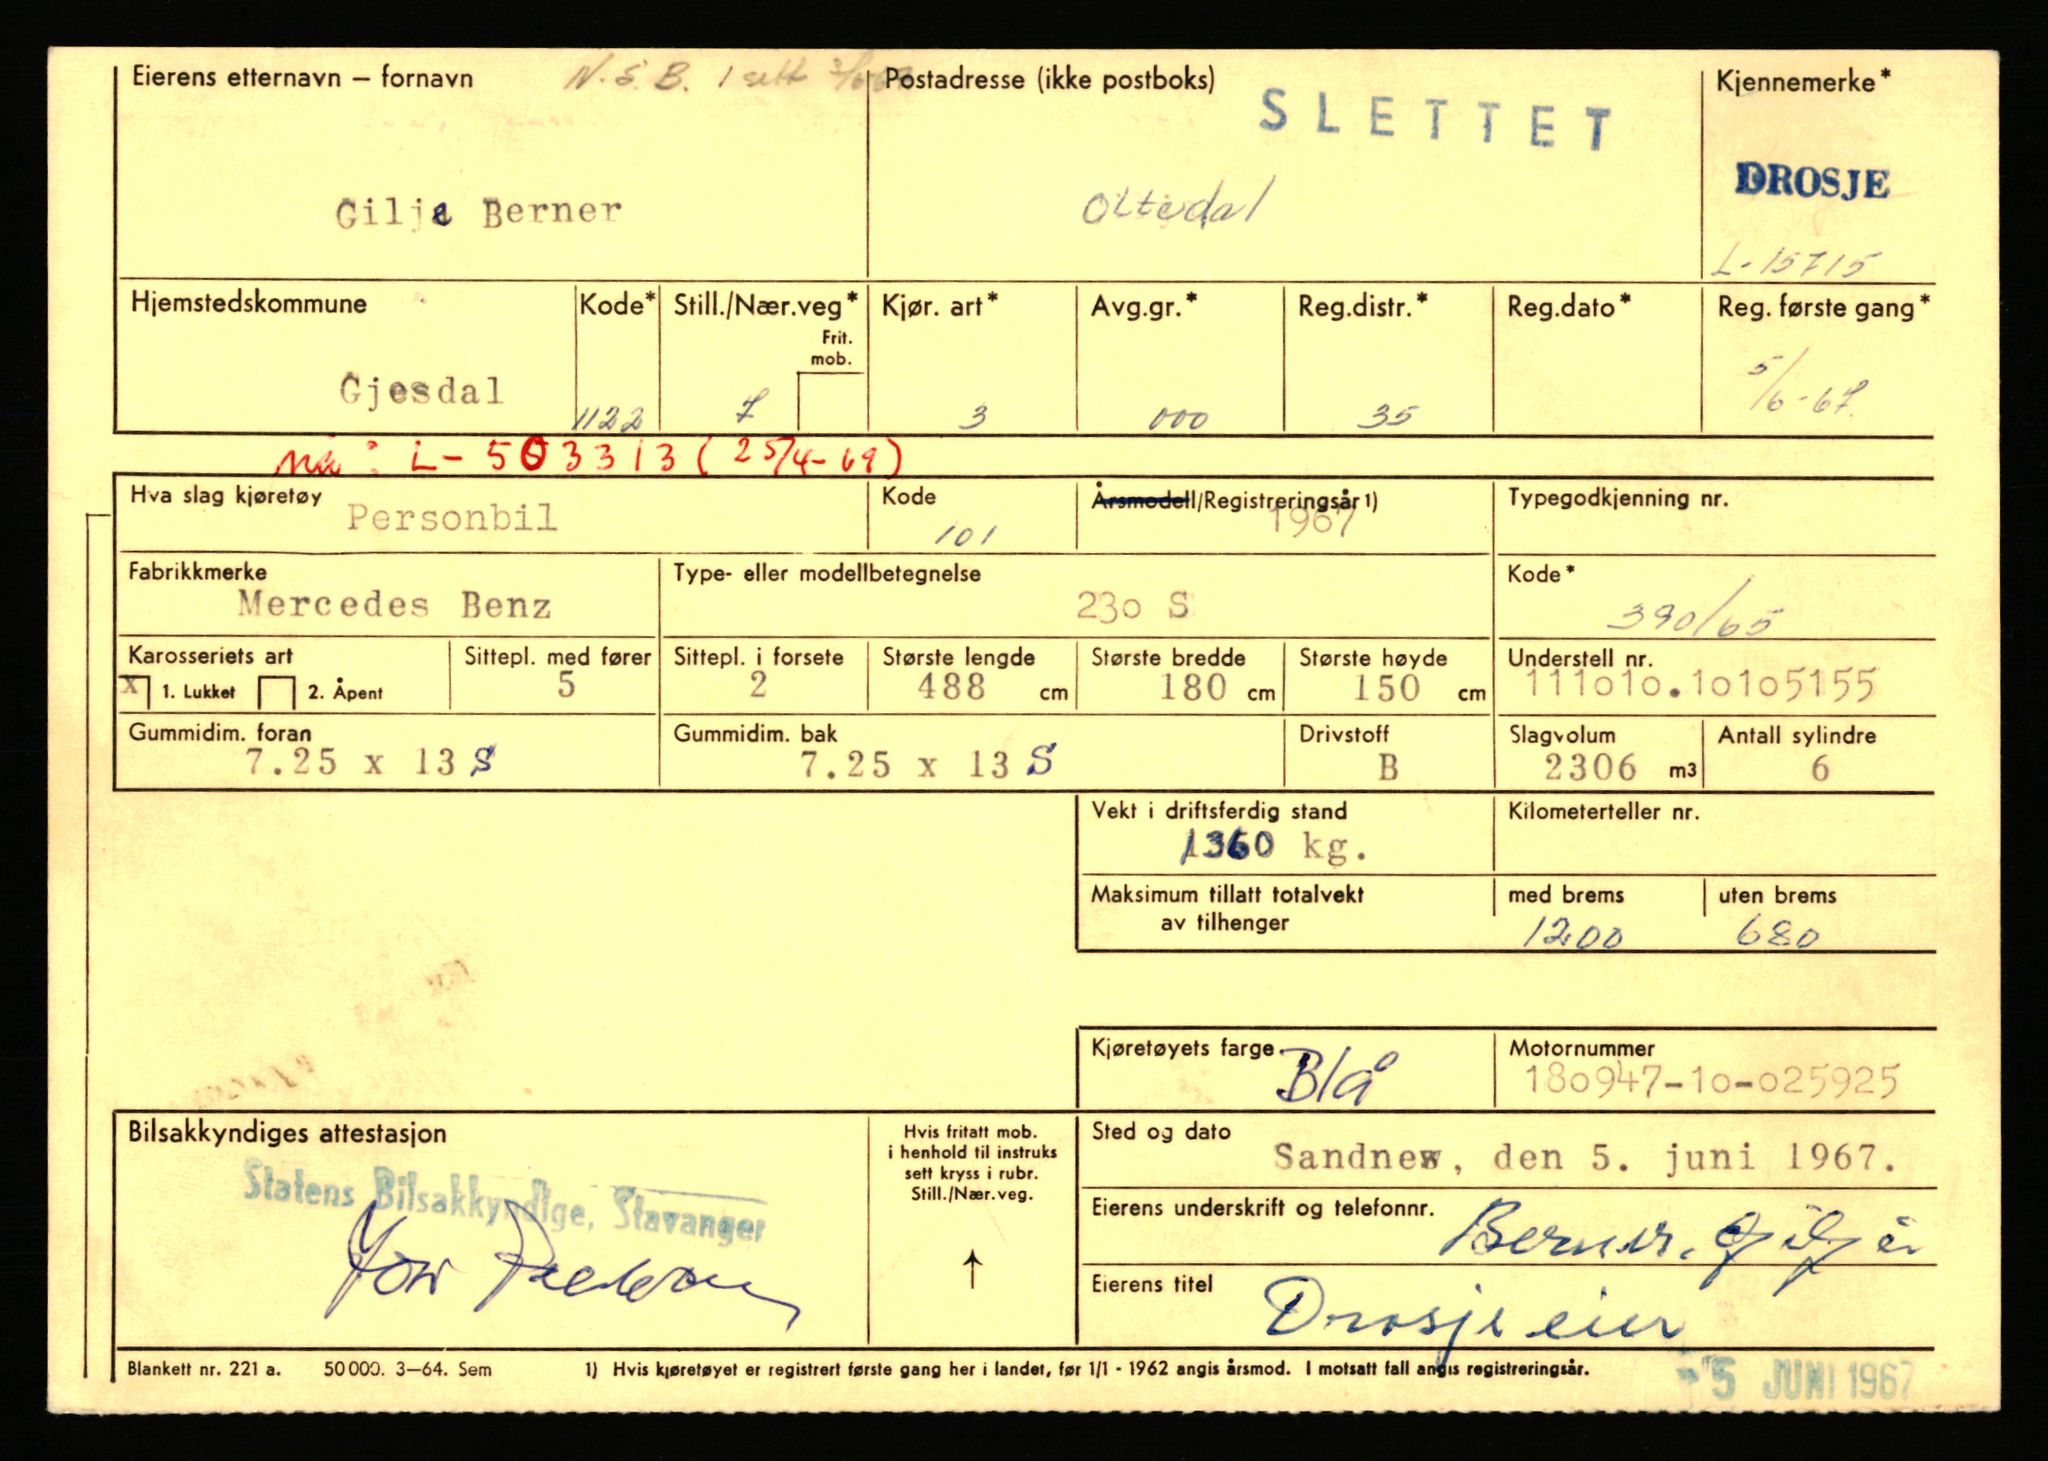 Eierens etternavn – fornavn N.S.B. 1 sett Postadresse (ikke postboks) Kjennemerke*
SLETTET
DROSJE
Gilje Berner Oltedal
L-15715
Hjemstedskommune Kode* Still./Nær.veg* Kjør. art* Avg.gr.* Reg.distr.* Reg.dato* Reg. første gang*
Frit. mob.
Gjesdal 1122 7 3 000 35 5/6-67.
nå: L-503313 (25/4-69)
Hva slag kjøretøy Kode Årsmodell/Registreringsår 1) Typegodkjenning nr.
Personbil 101 1967
Fabrikkmerke Type- eller modellbetegnelse Kode*
Mercedes Benz 230 S 390/65
Karosseriets art Sittepl. med fører Sittepl. i forsete Største lengde Største bredde Største høyde Understell nr.
x 1. Lukket 2. Åpent 5 2 488 cm 180 cm 150 cm 111010.10105155
Gummidim. foran Gummidim. bak Drivstoff Slagvolum Antall sylindre
7.25 x 13 S 7.25 x 13 S B 2306 m3 6
Vekt i driftsferdig stand Kilometerteller nr.
1360 kg.
Maksimum tillatt totalvekt med brems uten brems
av tilhenger 1200 680
Kjøretøyets farge Motornummer
Blå 180947-10-025925
Bilsakkyndiges attestasjon Hvis fritatt mob. Sted og dato
i henhold til instruks
sett kryss i rubr.
Still./Nær.veg.
Sandnes, den 5. juni 1967.
Statens Bilsakkyndige, Stavanger
Eierens underskrift og telefonnr. Berner Gilje
↑
Eierens titel Drosjeeier
Blankett nr. 221 a. 50 000. 3–64. Sem 1) Hvis kjøretøyet er registrert første gang her i landet, før 1/1 - 1962 angis årsmod. I motsatt fall angis registreringsår.
5 JUNI 1967